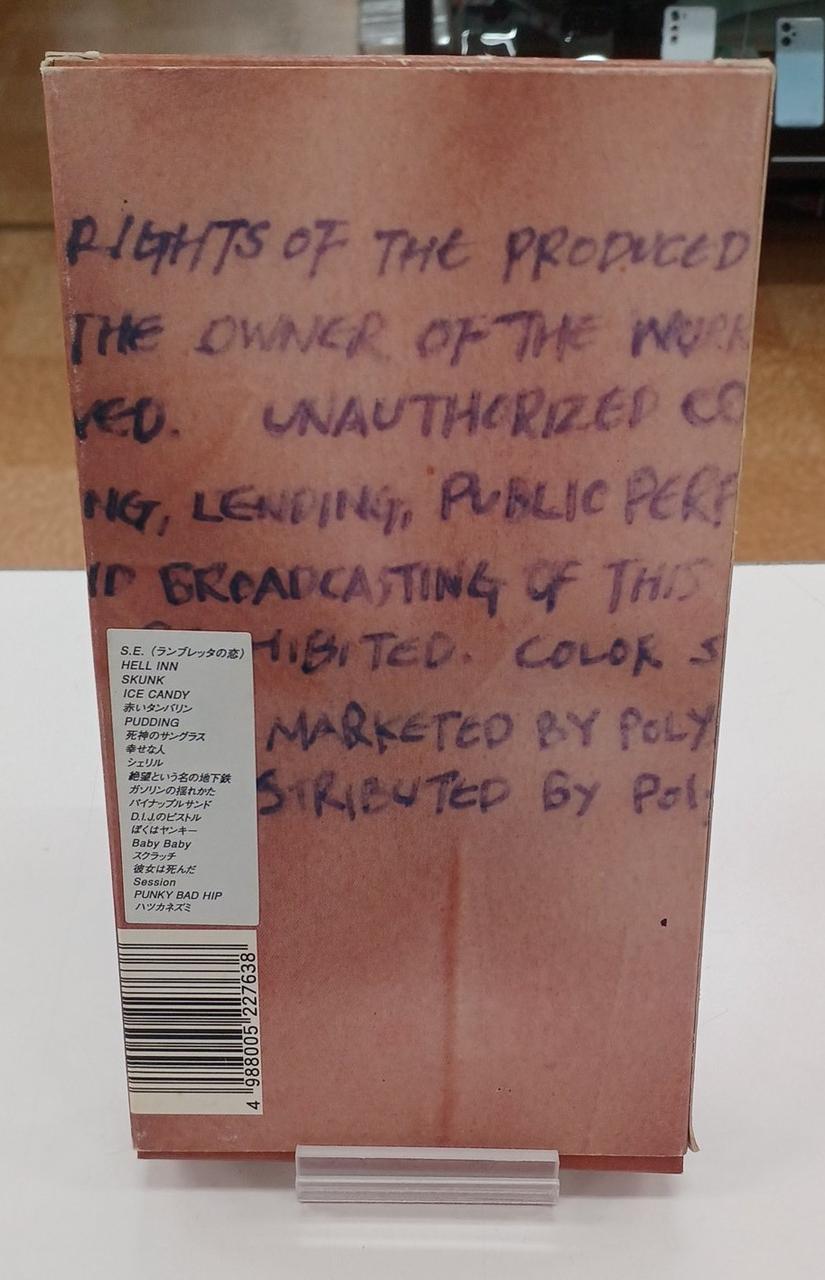 RIGHTS OF THE PRODUCED
THE OWNER OF THE WORK
VED. UNAUTHORIZED CO
NG, LENDING, PUBLIC PERF
BROADCASTING OF THIS
HIBITED. COLOR S
MARKETED BY POLY
STRIBUTED BY POLY
S.E.(ランブレッタの恋)
HELL INN
SKUNK
ICE CANDY
赤いタンバリン
PUDDING
死神のサングラス
幸せな人
シェリル
絶望という名の地下鉄
ガソリンの揺れかた
パイナップルサンド
D.I.J.のピストル
ぼくはヤンキー
Baby Baby
スクラッチ
彼女は死んだ
Session
PUNKY BAD HIP
ハツカネズミ
4 988005 227638